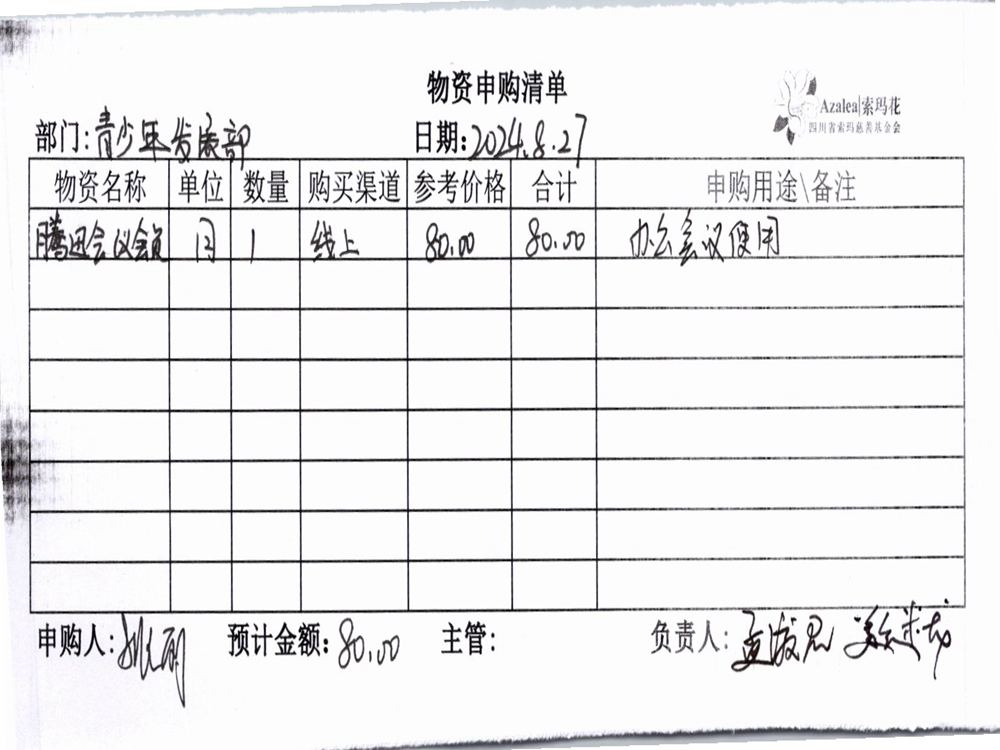 物资申购清单
Azalea|索玛花
四川省索玛慈善基金会
部门:青少年发展部 日期:2024.8.27
物资名称 单位 数量 购买渠道 参考价格 合计 申购用途\备注
腾迅会议会员 月 1 线上 80.00 80.00 办公会议使用
申购人: 预计金额:80.00 主管: 负责人: